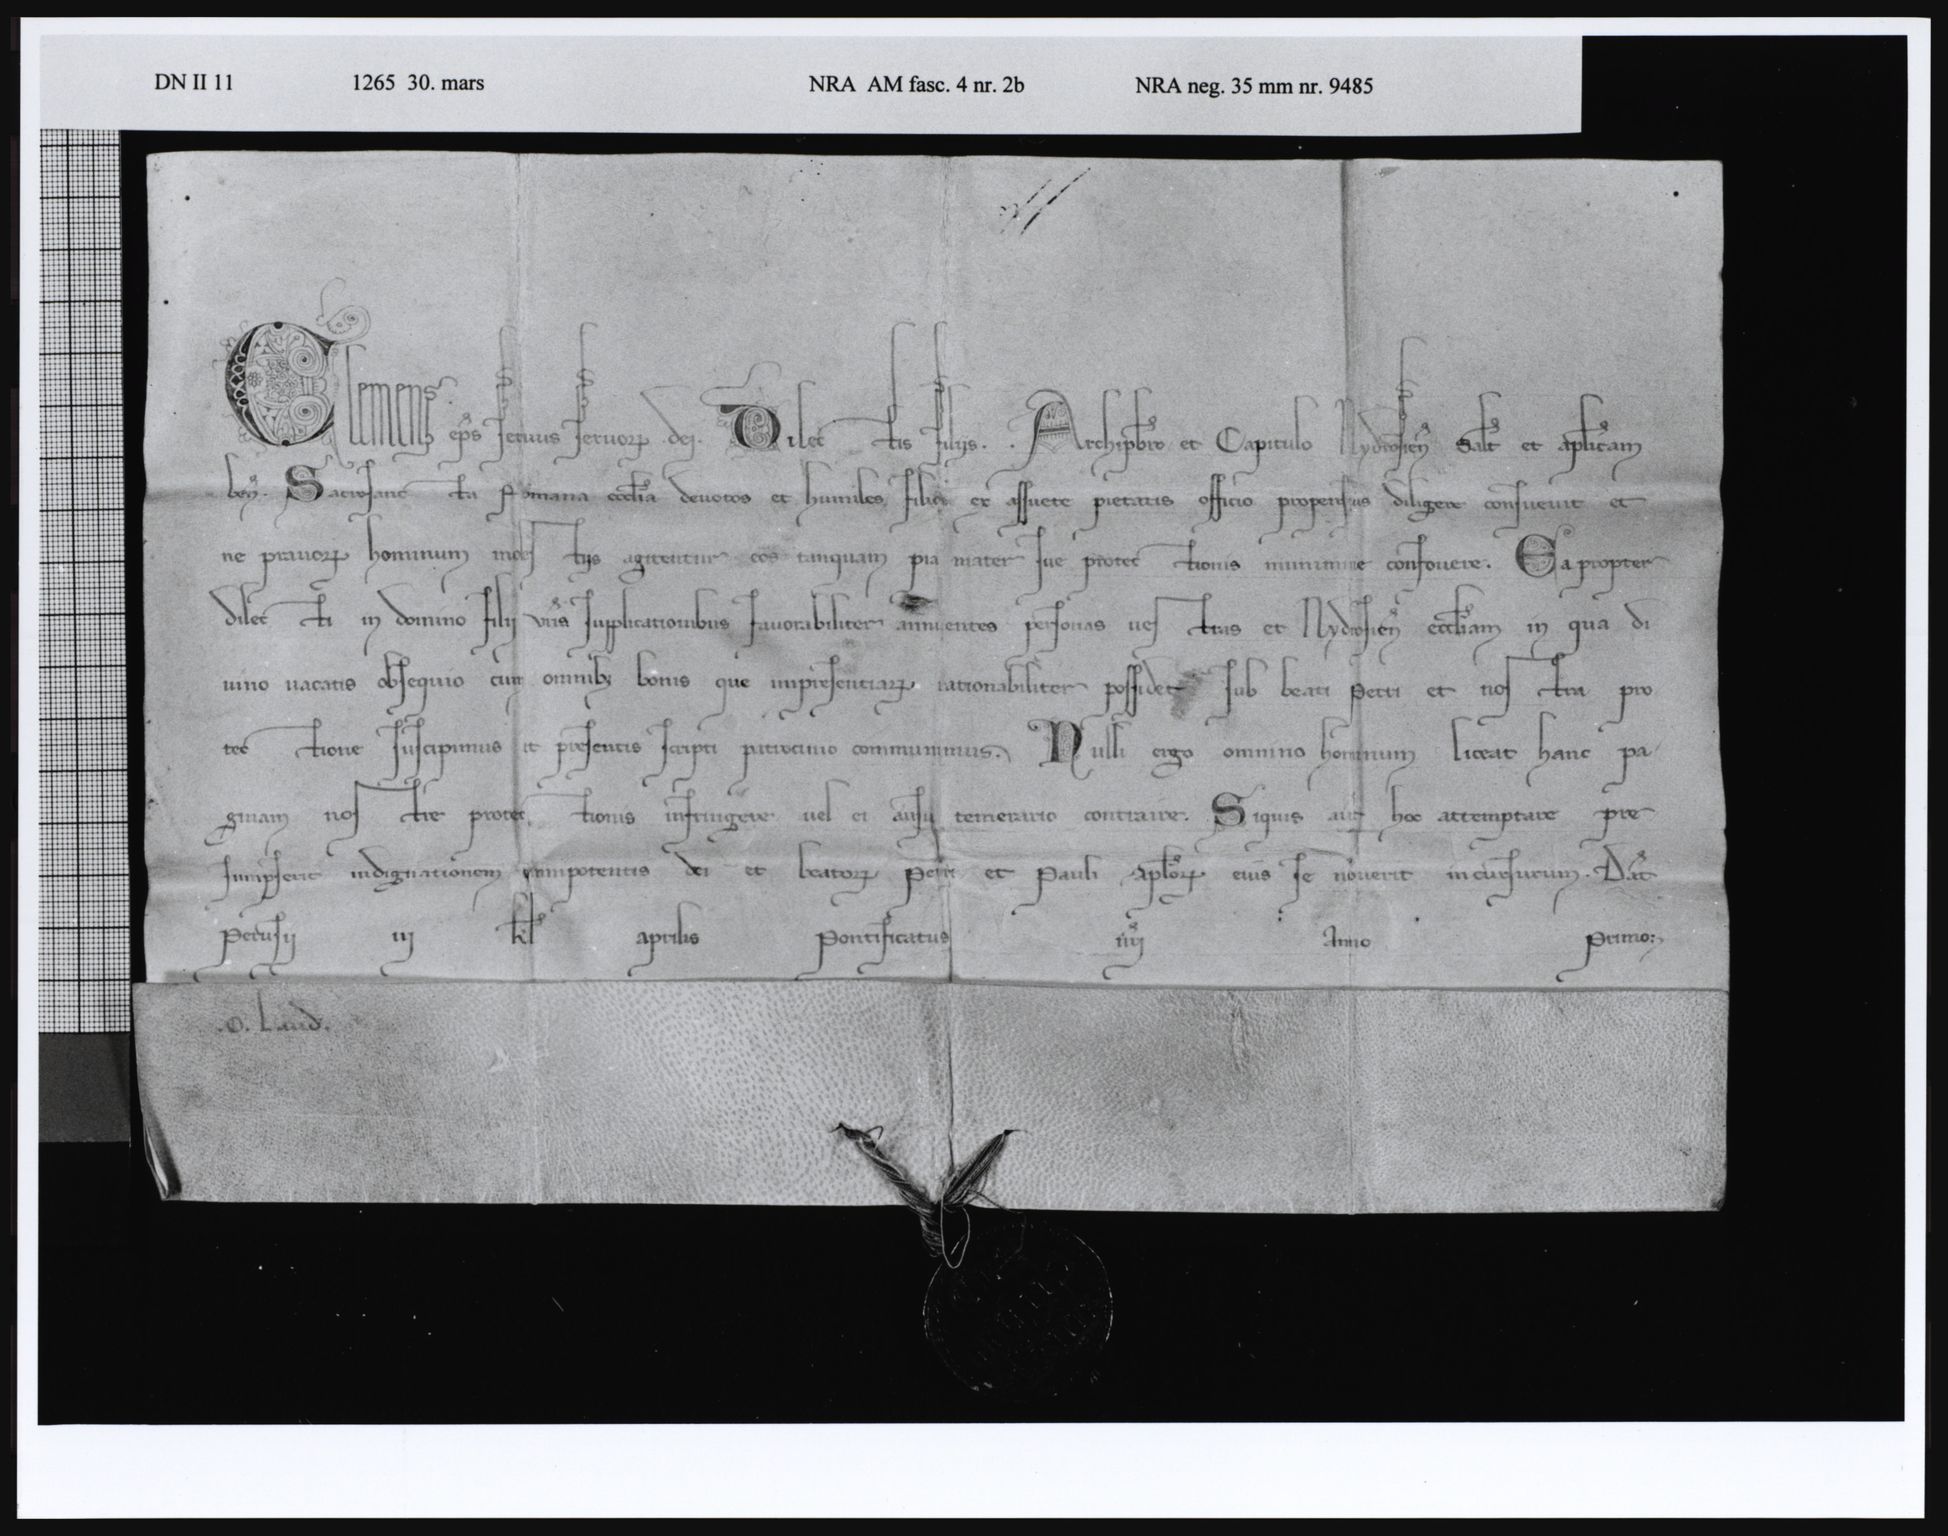 DN II 11 1265 30. mars NRA AM fasc. 4 nr. 2b NRA neg. 35 mm nr. 9485
Clemens ep̅s seruus seruoꝝ dei. Dilectis filijs. . Archipb̅ro et Capitulo Nydrosien̅ salt̅ et apl̅icam
ben̅. Sacrosancta Romana eccl̅ia deuotos et humiles filios ex assuete pietatis officio propensius diligere consueuit et
ne prauoꝝ hominum molestijs agitentur eos tanquam pia mater sue protectionis munimine confouere. Eapropter
dilecti in domino filij vr̅is supplicationibus fauorabiliter annuentes personas uestras et Nydrosien̅ eccl̅iam in qua di
uino uacatis obsequio cum omnibꝫ bonis que impresentiaꝝ rationabiliter possidet sub beati Petri et nostra pro
tectione suscipimus et presentis scripti patrocinio communimus. Nulli ergo omnino hominum liceat hanc pa
ginam nostre protectionis infringere uel ei ausu temerario contraire. Siquis aut̅ hoc attemptare pre
sumpserit indignationem omnipotentis dei et beatoꝝ Petri et Pauli apl̅oꝝ eius se nouerit incursurum. Dat̅
Perusij iij kl̅ aprilis Pontificatus nr̅i Anno Primo.
.O. Laud.